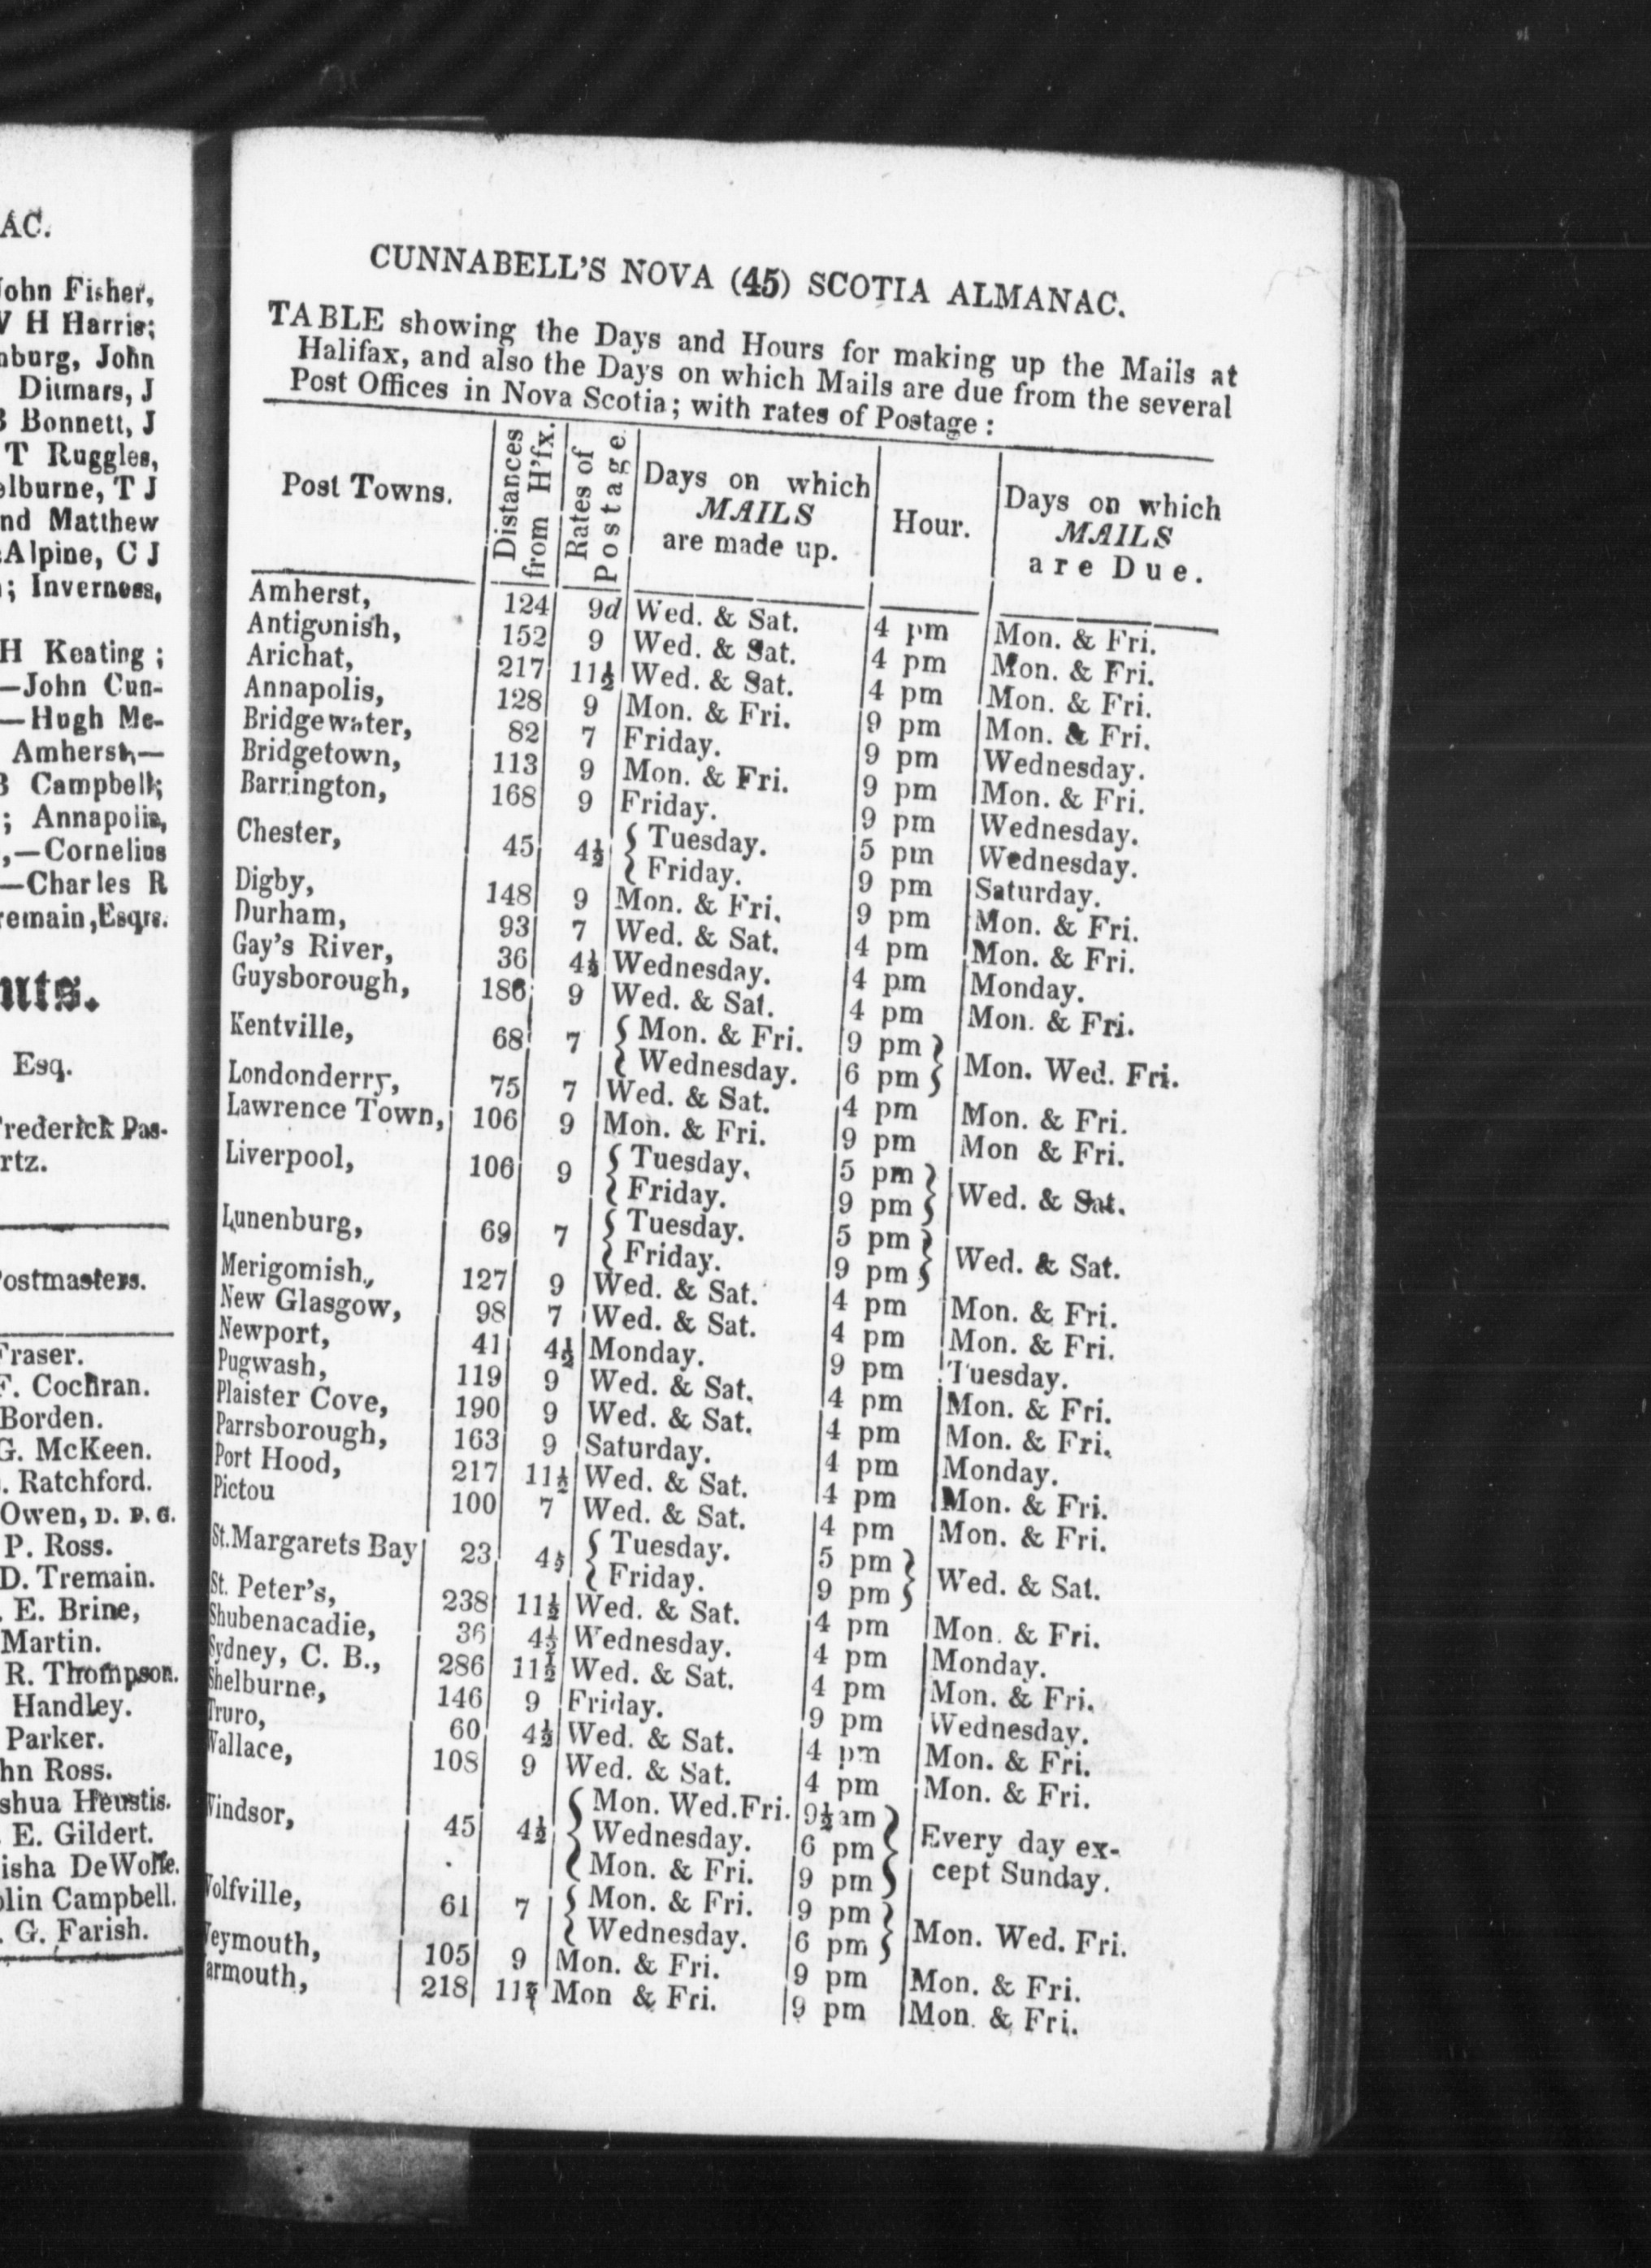 AC.
John Fisher,
W H Harris;
nburg, John
Ditmars, J
B Bonnett, J
T Ruggles,
elburne, T J
nd Matthew
Alpine, C J
; Inverness,
H Keating;
—John Cun-
—Hugh Mc-
Amherst,—
B Campbell;
; Annapolis,
,—Cornelius
—Charles R
remain, Esqrs.
nts.
Esq.
Frederick Pas-
rtz.
Postmasters.
Fraser.
F. Cochran.
Borden.
G. McKeen.
. Ratchford.
Owen, D. P. G.
P. Ross.
D. Tremain.
. E. Brine,
Martin.
R. Thompson.
Handley.
Parker.
hn Ross.
shua Heustis.
. E. Gildert.
isha DeWolfe.
olin Campbell.
. G. Farish.
CUNNABELL'S NOVA (45) SCOTIA ALMANAC.
TABLE showing the Days and Hours for making up the Mails at
Halifax, and also the Days on which Mails are due from the several
Post Offices in Nova Scotia; with rates of Postage:
Post Towns. Distances from H'fx. Rates of Postage Days on which MAILS are made up. Hour. Days on which MAILS are Due.
Amherst, 124 9d Wed. & Sat. 4 pm Mon. & Fri.
Antigonish, 152 9 Wed. & Sat. 4 pm Mon. & Fri.
Arichat, 217 11½ Wed. & Sat. 4 pm Mon. & Fri.
Annapolis, 128 9 Mon. & Fri. 9 pm Mon. & Fri.
Bridgewater, 82 7 Friday. 9 pm Wednesday.
Bridgetown, 113 9 Mon. & Fri. 9 pm Mon. & Fri.
Barrington, 168 9 Friday. 9 pm Wednesday.
Chester, 45 4½ { Tuesday. 5 pm Wednesday.
{ Friday. 9 pm Saturday.
Digby, 148 9 Mon. & Fri. 9 pm Mon. & Fri.
Durham, 93 7 Wed. & Sat. 4 pm Mon. & Fri.
Gay's River, 36 4½ Wednesday. 4 pm Monday.
Guysborough, 186 9 Wed. & Sat. 4 pm Mon. & Fri.
Kentville, 68 7 { Mon. & Fri. 9 pm } Mon. Wed. Fri.
{ Wednesday. 6 pm }
Londonderry, 75 7 Wed. & Sat. 4 pm Mon. & Fri.
Lawrence Town, 106 9 Mon. & Fri. 9 pm Mon & Fri.
Liverpool, 106 9 { Tuesday. 5 pm } Wed. & Sat.
{ Friday. 9 pm }
Lunenburg, 69 7 { Tuesday. 5 pm } Wed. & Sat.
{ Friday. 9 pm }
Merigomish, 127 9 Wed. & Sat. 4 pm Mon. & Fri.
New Glasgow, 98 7 Wed. & Sat. 4 pm Mon. & Fri.
Newport, 41 4½ Monday. 9 pm Tuesday.
Pugwash, 119 9 Wed. & Sat. 4 pm Mon. & Fri.
Plaister Cove, 190 9 Wed. & Sat. 4 pm Mon. & Fri.
Parrsborough, 163 9 Saturday. 4 pm Monday.
Port Hood, 217 11½ Wed. & Sat. 4 pm Mon. & Fri.
Pictou 100 7 Wed. & Sat. 4 pm Mon. & Fri.
St. Margarets Bay 23 4½ { Tuesday. 5 pm } Wed. & Sat.
{ Friday. 9 pm }
St. Peter's, 238 11½ Wed. & Sat. 4 pm Mon. & Fri.
Shubenacadie, 36 4½ Wednesday. 4 pm Monday.
Sydney, C. B., 286 11½ Wed. & Sat. 4 pm Mon. & Fri.
Shelburne, 146 9 Friday. 9 pm Wednesday.
Truro, 60 4½ Wed. & Sat. 4 pm Mon. & Fri.
Wallace, 108 9 Wed. & Sat. 4 pm Mon. & Fri.
Windsor, 45 4½ { Mon. Wed. Fri. 9½ am } Every day ex-
{ Wednesday. 6 pm } cept Sunday.
{ Mon. & Fri. 9 pm }
Wolfville, 61 7 { Mon. & Fri. 9 pm } Mon. Wed. Fri.
{ Wednesday. 6 pm }
Weymouth, 105 9 Mon. & Fri. 9 pm Mon. & Fri.
armouth, 218 11½ Mon & Fri. 9 pm Mon. & Fri.